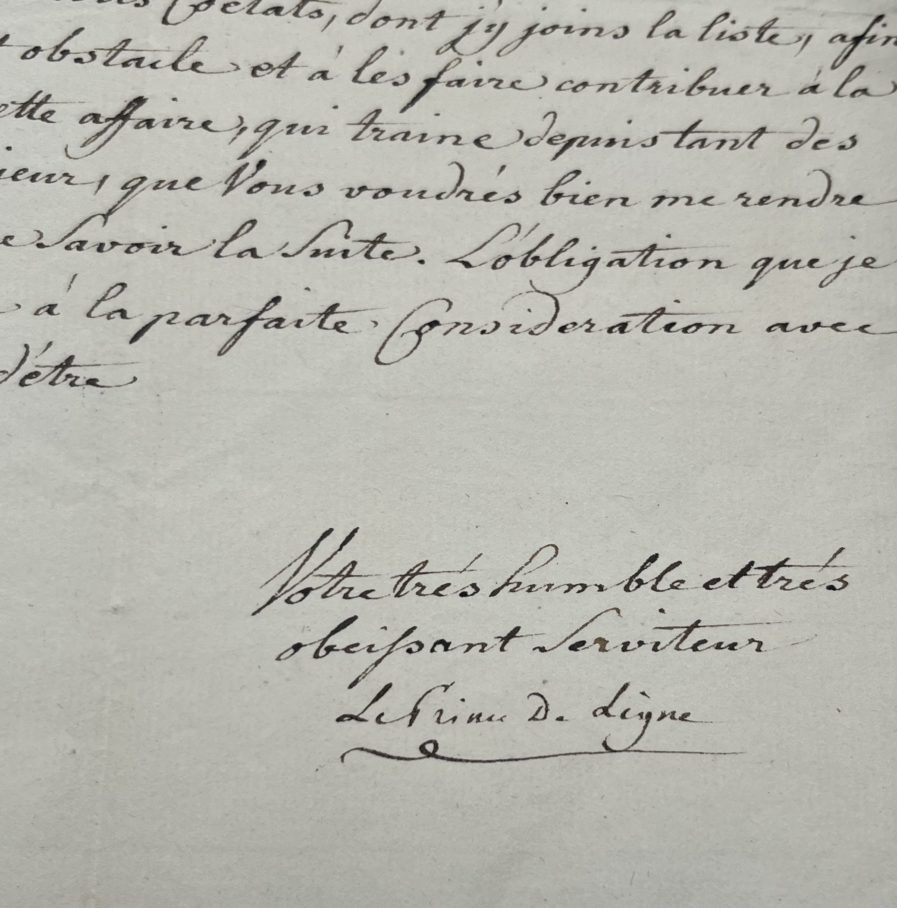 Coëtats, dont j'ÿ joins la liste, afin
obstacle et á les faire contribuer á la
ette affaire, qui traine depuis tant des
ieur, que Vous voudrés bien me rendre
e Savoir la Suite. L'óbligation que je
á la parfaite Consideration avec
d'étre
Votre trés humble et trés
obeissant Serviteur
Le Prince De Ligne